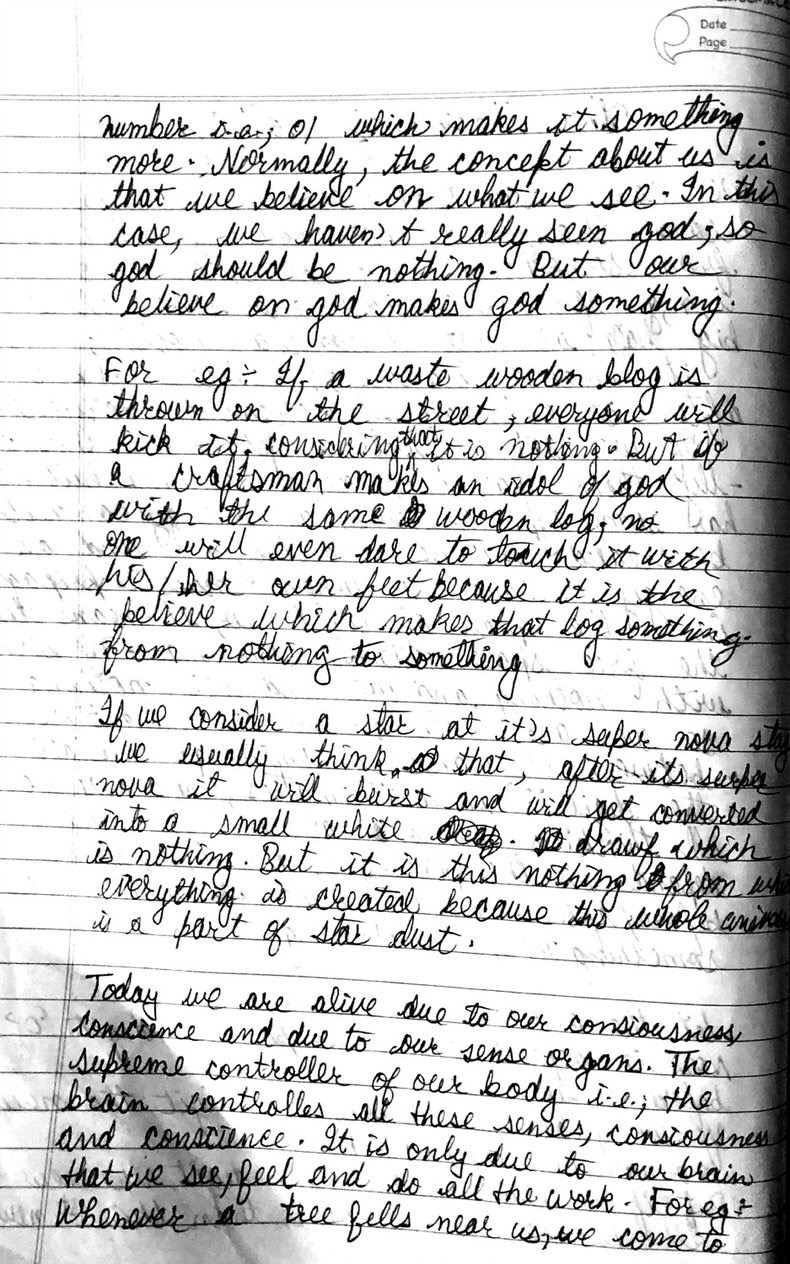 Date
Page
number i.e.; 01 which makes it something
more. Normally, the concept about us is
that we believe on what we see. In this
case, we haven't really seen god; so
god should be nothing. But our
believe on god makes god something.
For eg :- If a waste wooden blog is
thrown on the street, everyone will
kick it, considering that it is nothing. But if
a craftsman makes an idol of god
with the same wooden log; no
one will even dare to touch it with
his/her own feet because it is the
believe which makes that log something.
from nothing to something
If we consider a star at it's super nova
we usually think that, after its super
nova it will burst and will get converted
into a small white drawf which
is nothing. But it is this nothing from
everything is created because this whole
is a part of star dust.
Today we are alive due to our consiousness,
conscience and due to our sense organs. The
supreme controller of our body i.e.; the
brain controlles all these senses, consiousness
and conscience. It is only due to our brain
that we see, feel and do all the work. For eg :-
Whenever a tree fells near us, we come to